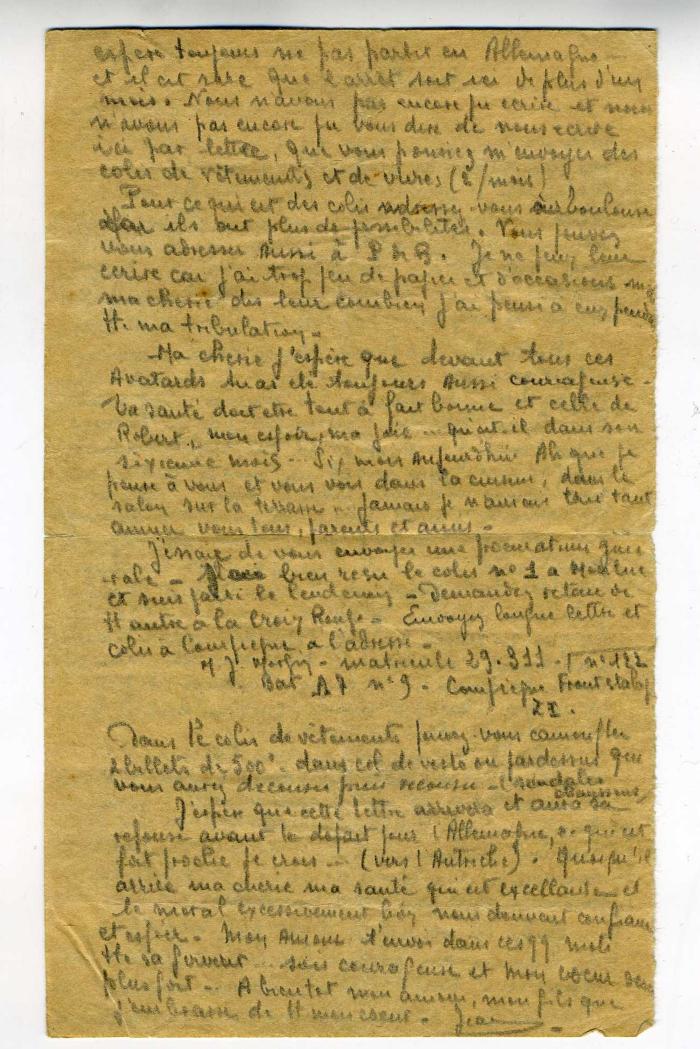 espère toujours ne pas partir en Allemagne -
et il est rare que l'arrêt soit ici de plus d'un
mois. Nous n'avons pas encore pu écrire et nous
n'avons pas encore pu vous dire de nous écrire
ici par lettre, que vous pouvez m'envoyer des
colis de vêtements et de vivres (2/mois)
Pour ce qui est des colis adressez vous
car ils ont plus de possibilités. Vous pouvez
vous adresser aussi à P de B. Je ne peux leur
écrire car j'ai trop peu de papier et d'occasions
ma chérie dis leur combien j'ai pensé à eux
tte ma tribulation -
Ma chérie j'espère que devant tous ces
Avatards tu as été toujours aussi courageuse -
Ta santé doit être tout à fait bonne et celle de
Robert, mon espoir, ma joie - qui est il dans son
sixième mois - Six mois Aujourdhui Ah que je
pense à vous et vous vois dans la cuisine, dans le
salon sur la terrasse - Jamais je n'aurais tant
aimer vous tous, parents et amis -
J'essaie de vous envoyer une procuration géné
rale - bien reçu le colis n° 1 a
et suis parti le lendemain - Demandez retour de
tt autre à la Croix Rouge - Envoyez longue lettre et
colis à Compiègne a l'adresse -
M J - matricule 29.311 - n° 122
Bat A7 n° 9 - Compiègne Frontstalag
Dans le colis de vêtements pouvez-vous camoufler
2 billets de 500 - dans col de veste ou pardessus que
vous aurez décousu puis recousu - (sandales
chaussons)
J'espère que cette lettre arrivera et aura sa
réponse avant le départ pour l'Allemagne, ce qui est
fort proche je crois - (vers l'Autriche). Quoiqu'il
arrive ma chérie ma santé qui est excellante et
le moral excessivement bon nous donnent confiance
et espoir - Mon Amour t'envoi dans ces 99 mots
tte sa ferveur sois courageuse et mon coeur
plus fort - A bientot mon amour, mon fils que
j'embrasse de tt mon coeur - Jean